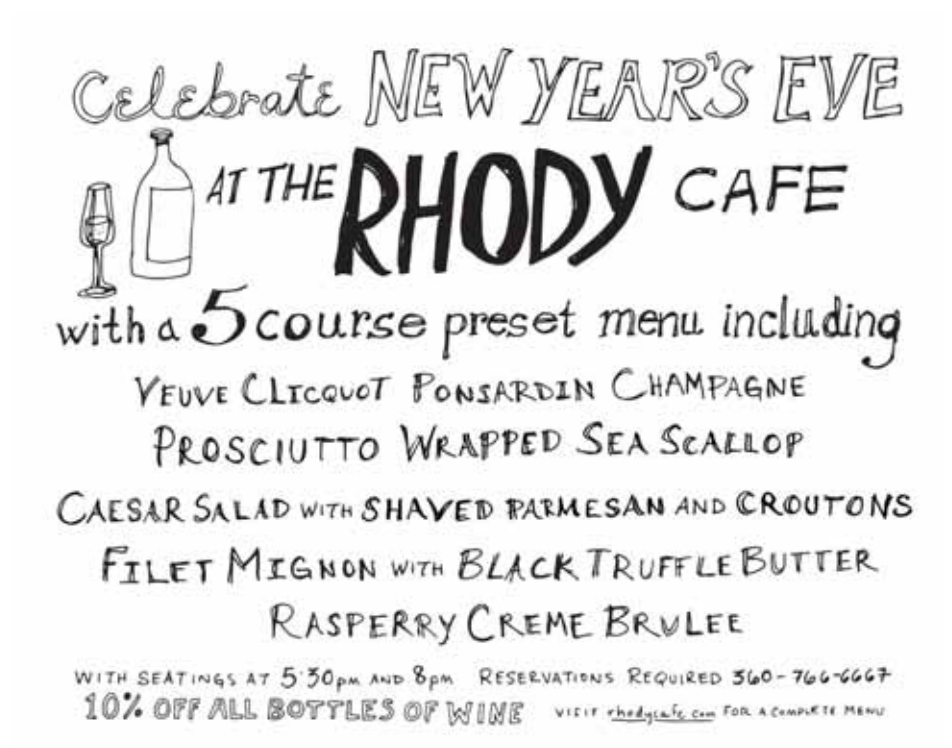 Celebrate NEW YEAR'S EVE
AT THE RHODY CAFE
with a 5 course preset menu including
VEUVE CLICQUOT PONSARDIN CHAMPAGNE
PROSCIUTTO WRAPPED SEA SCALLOP
CAESAR SALAD WITH SHAVED PARMESAN AND CROUTONS
FILET MIGNON WITH BLACK TRUFFLE BUTTER
RASPERRY CREME BRULEE
WITH SEATINGS AT 5:30pm AND 8pm RESERVATIONS REQUIRED 360-766-6667
10% OFF ALL BOTTLES OF WINE VISIT rhodycafe.com FOR A COMPLETE MENU